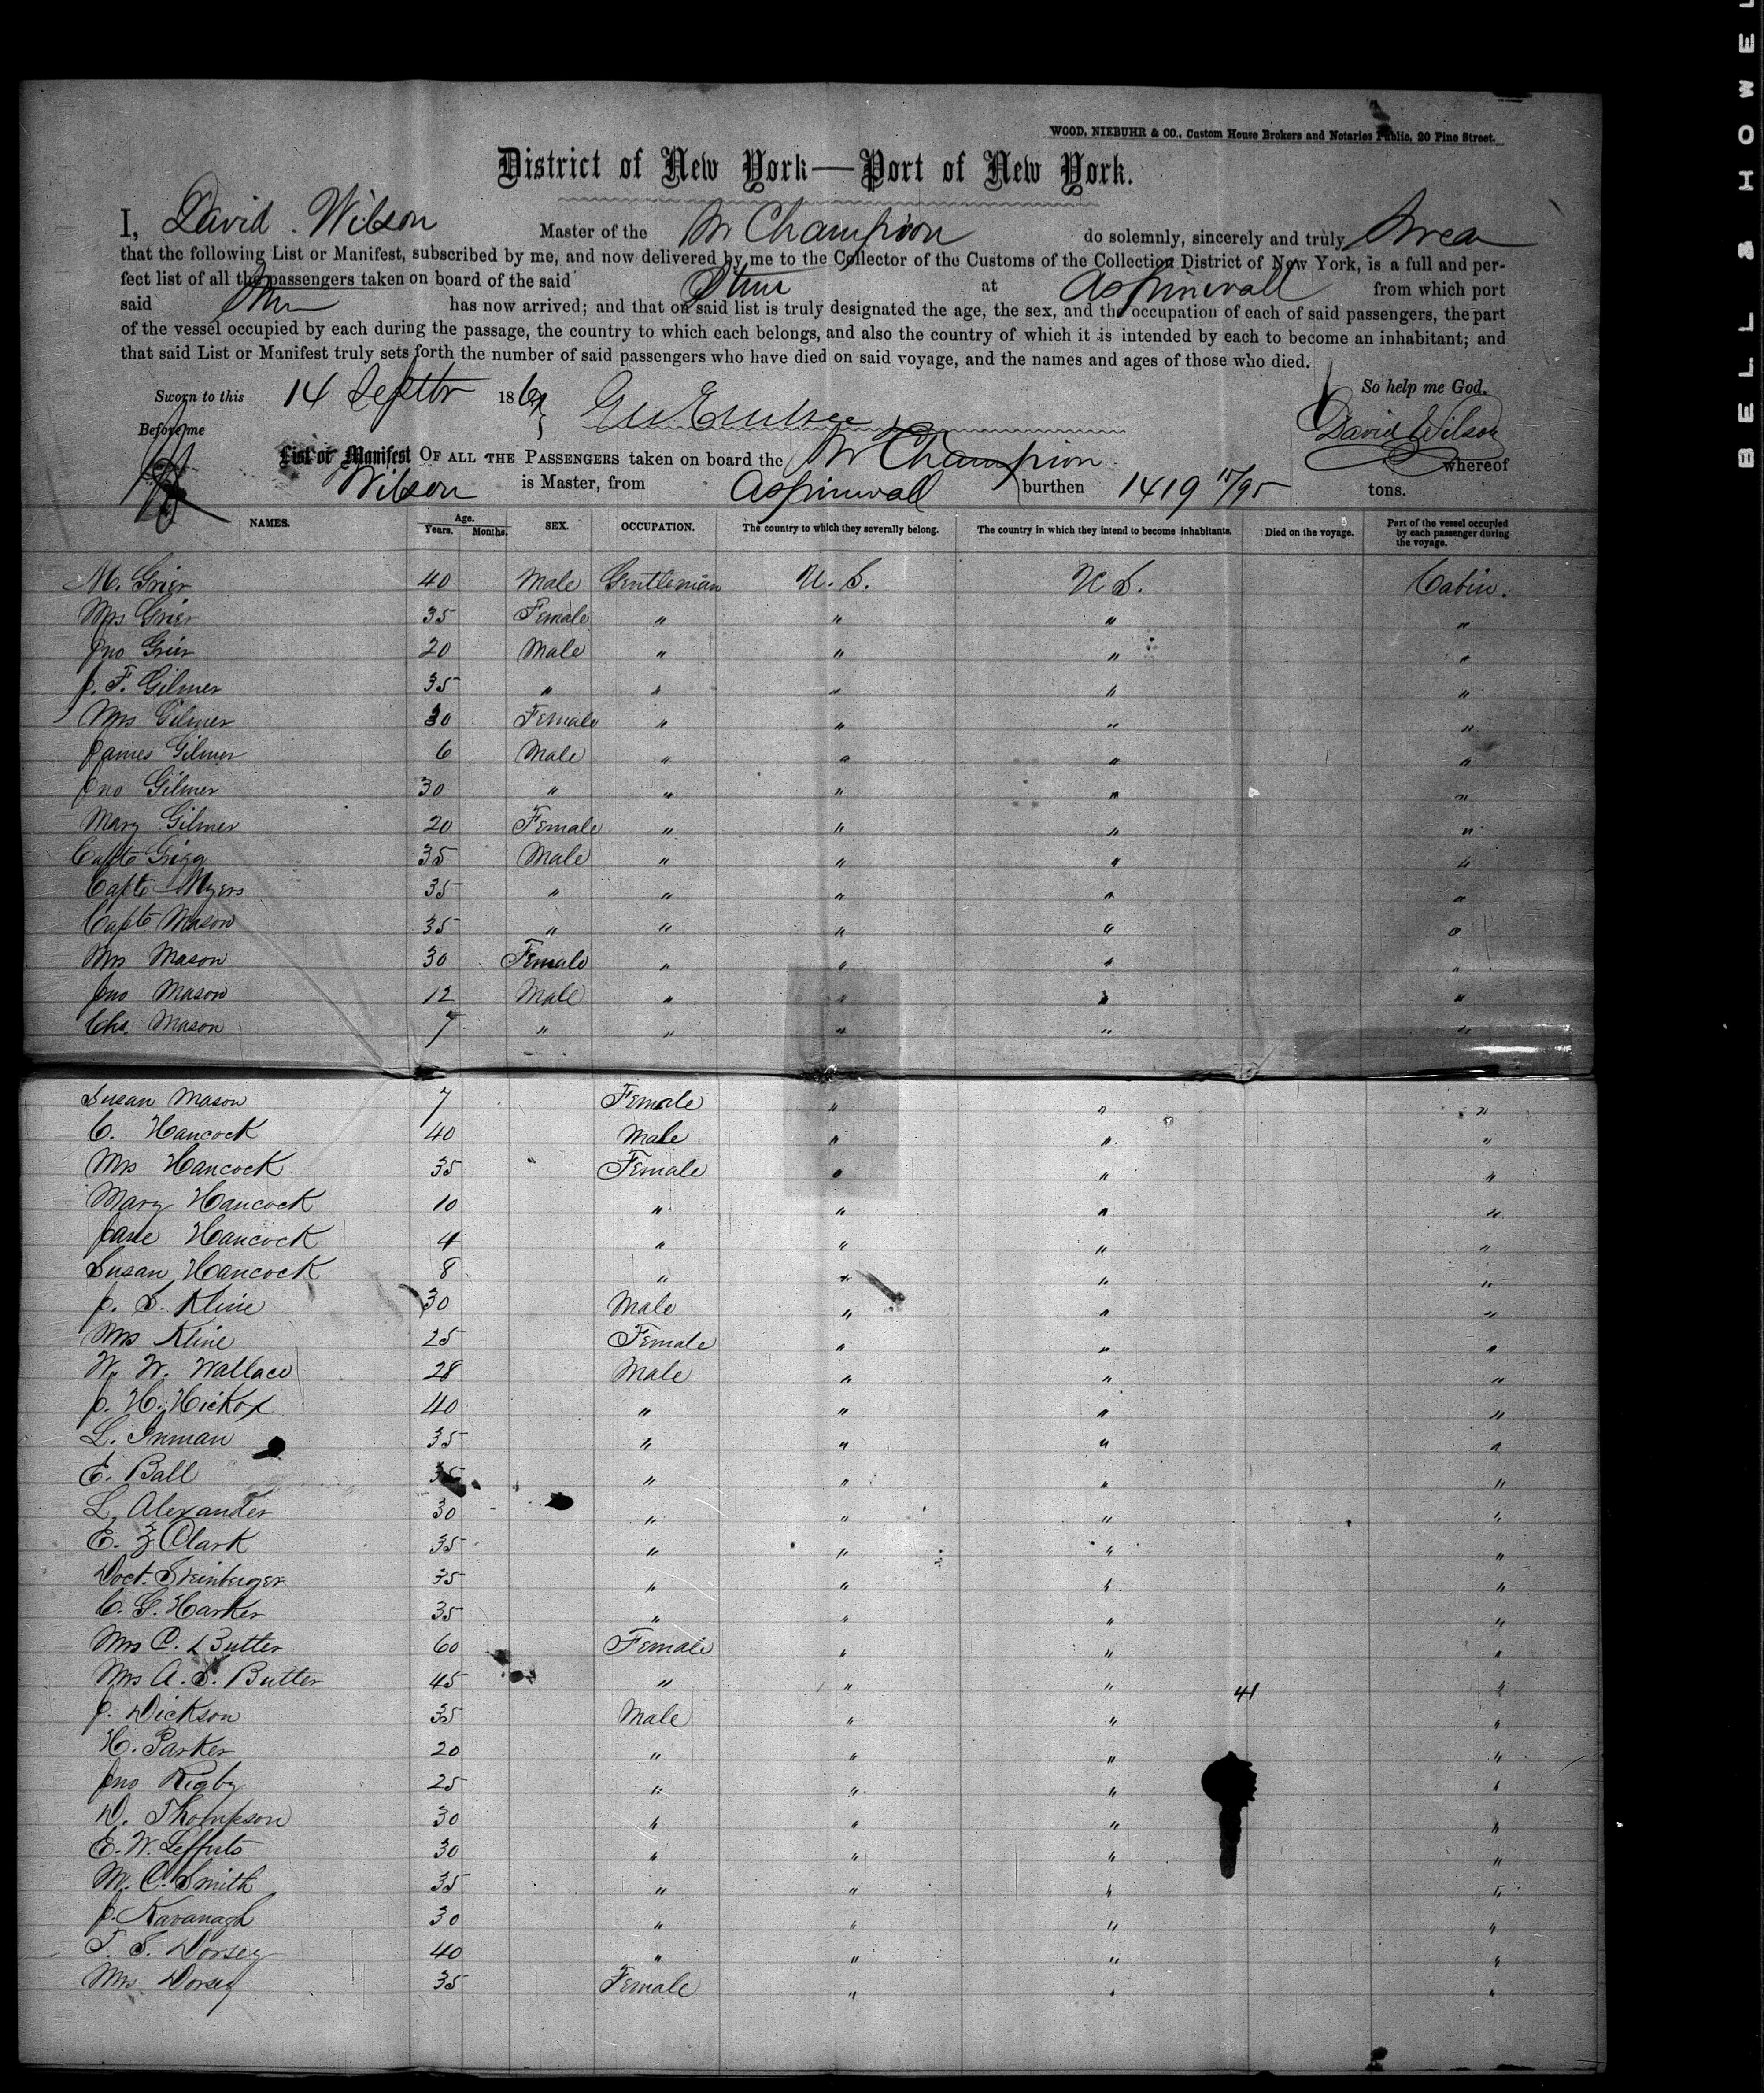 BELL & HOWEL
WOOD, NIEBUHR & CO., Custom House Brokers and Notaries Public, 20 Pine Street.
District of New York—Port of New York.
I, David Wilson Master of the Str Champion do solemnly, sincerely and truly Swear
that the following List or Manifest, subscribed by me, and now delivered by me to the Collector of the Customs of the Collection District of New York, is a full and per-
fect list of all the passengers taken on board of the said Str at Aspinwall from which port
said Str has now arrived; and that on said list is truly designated the age, the sex, and the occupation of each of said passengers, the part
of the vessel occupied by each during the passage, the country to which each belongs, and also the country of which it is intended by each to become an inhabitant; and
that said List or Manifest truly sets forth the number of said passengers who have died on said voyage, and the names and ages of those who died.
Sworn to this 14 Septbr 186 So help me God.
Before me David Wilson
List or Manifest OF ALL THE PASSENGERS taken on board the Str Champion whereof
Wilson is Master, from Aspinwall burthen 1419 17/95 tons.
NAMES. Age. Years. Months. SEX. OCCUPATION. The country to which they severally belong. The country in which they intend to become inhabitants. Died on the voyage. Part of the vessel occupied by each passenger during the voyage.
M. Grier 40 Male Gentleman U. S. U S. Cabin.
Mrs Grier 35 Female " " " "
Jno Grier 20 Male " " " "
J. F. Gilmer 35 " " " " "
Mrs Gilmer 30 Female " " " "
James Gilmer 6 Male " " " "
Jno Gilmer 30 " " " " "
Mary Gilmer 20 Female " " " "
Capt Grigg 35 Male " " " "
Capt Myers 35 " " " " "
Capt Mason 35 " " " " "
Mrs Mason 30 Female " " " "
Jno Mason 12 Male " " " "
Chs. Mason 7 " " " " "
Susan Mason 7 Female " " "
C. Hancock 40 Male " " "
Mrs Hancock 35 Female " " "
Mary Hancock 10 " " " "
Jane Hancock 4 " " " "
Susan Hancock 8 " " " "
J. S. Kline 30 Male " " "
Mrs Kline 25 Female " " "
W. W. Wallace 28 Male " " "
J. H. Hickox 40 " " " "
L. Inman 35 " " " "
E. Ball 35 " " " "
L. Alexander 30 " " " "
E. Z Clark 35 " " " "
Doct. Steinberger 35 " " " "
C. G. Harker 35 " " " "
Mrs C. Butter 60 Female " " "
Mrs A. S. Butter 45 " " " 41 "
J. Dickson 35 Male " " "
H. Parker 20 " " " "
Jno Rigby 25 " " " "
D. Thompson 30 " " " "
E. W. Lefferts 30 " " " "
M. C. Smith 35 " " " "
J. Kavanagh 30 " " " "
T. S. Dorsey 40 " " " "
Mrs Dorsey 35 Female " " "